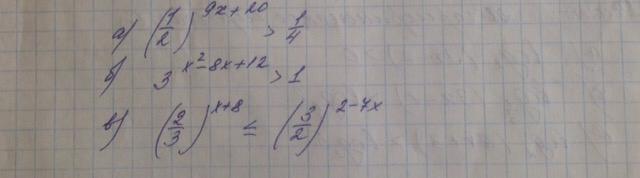 а) (1/2)^(9x+20) > 1/4
б) 3^(x²-8x+12) > 1
в) (2/3)^(x+8) ≤ (3/2)^(2-7x)